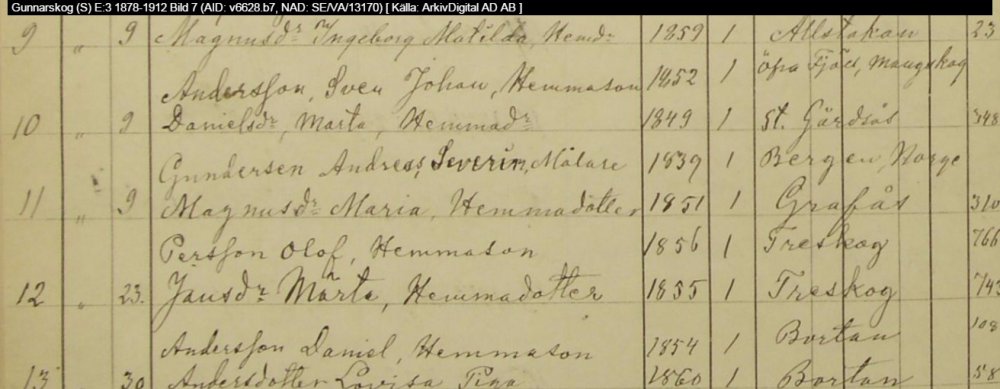 Gunnarskog (S) E:3 1878-1912 Bild 7 (AID: v6628.b7, NAD: SE/VA/13170) [ Källa: ArkivDigital AD AB ]
9 " 9 Magnusdr Ingeborg Matilda, Hemdr 1859 1 Allstakan 23
Andersson, Sven Johan, Hemmason 1852 1 öfra Fjäll, Mangskog
10 " 9 Danielsdr, Marta, Hemmadr 1849 1 St. Gärdsås 348
Gundersen Andreas Severin, Målare 1839 1 Bergen, Norge
11 " 9 Magnusdr Maria, Hemmadotter 1851 1 Grafås 310
Persson Olof, Hemmason 1856 1 Treskog 766
12 " 23. Jansdr Märta, Hemmadotter 1855 1 Treskog 743
Andersson Daniel, Hemmason 1854 1 Bortan 108
13 30 Andersdotter Lovisa Piga 1860 1 Bortan 58